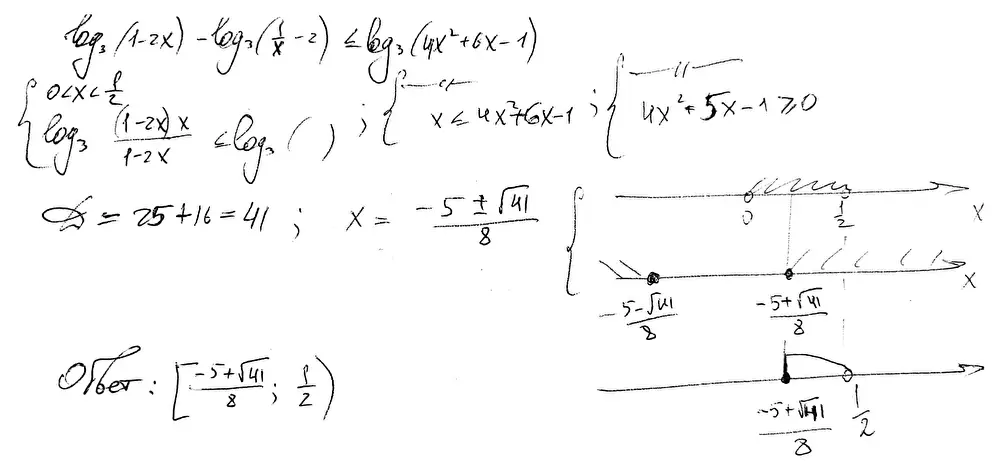 log₃(1-2x) - log₃(1/x - 2) ≤ log₃(4x²+6x-1)
{ 0<x<1/2
log₃ (1-2x)x/(1-2x) ≤ log₃ ( ) ; { —〃— x ≤ 4x²+6x-1 ; { —〃— 4x²+5x-1 ≥ 0
D = 25+16 = 41 ; x = (-5 ± √41)/8 {
0 1/2 x
(-5-√41)/8 (-5+√41)/8 x
Ответ: [(-5+√41)/8 ; 1/2)
(-5+√41)/8 1/2